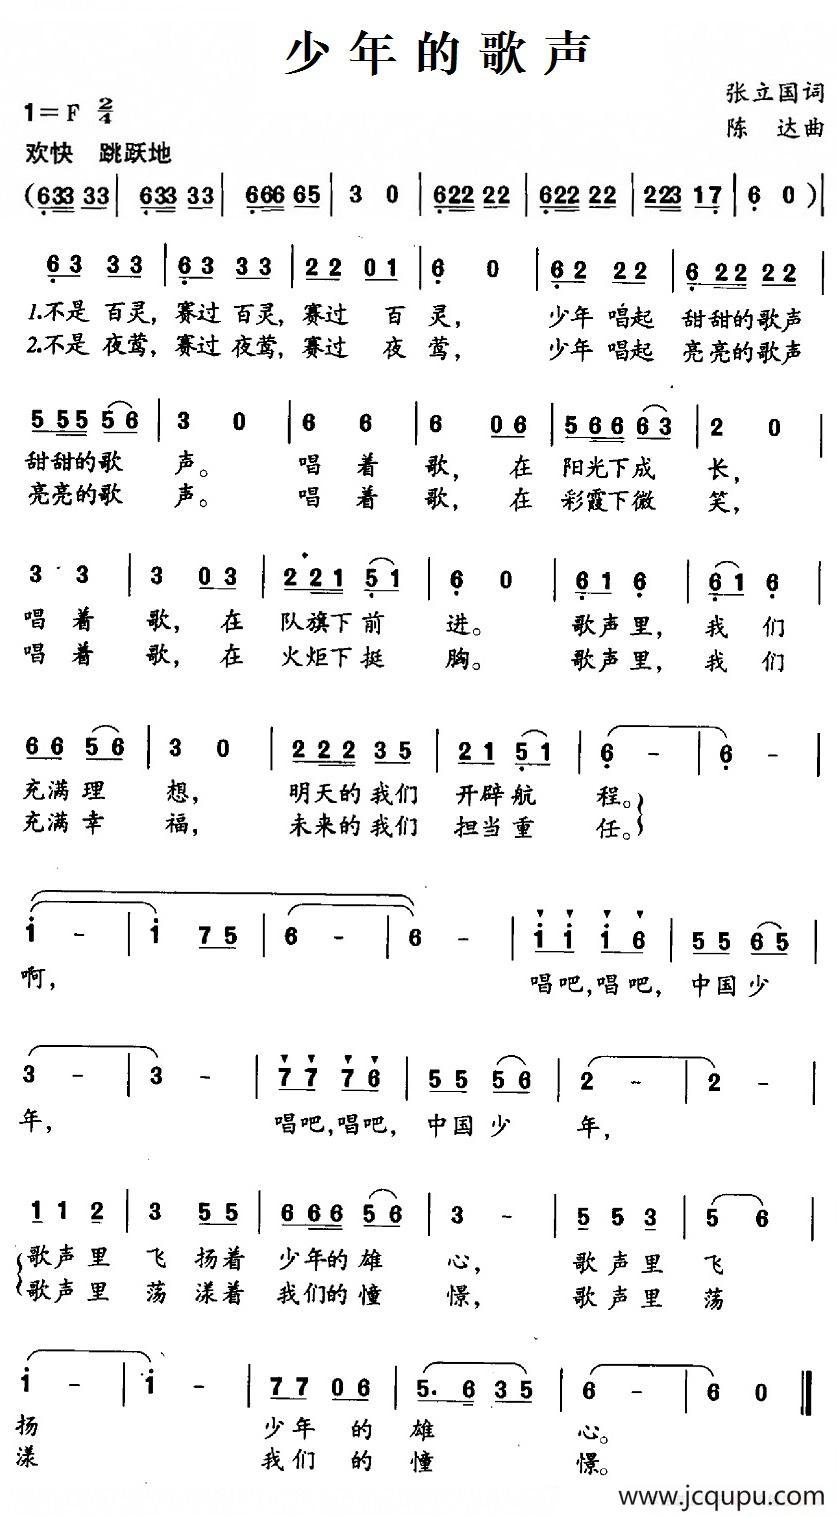 少年的歌声
张立国词
1=F 2/4
陈 达曲
欢快 跳跃地
(633 33 | 633 33 | 666 65 | 3 0 | 622 22 | 622 22 | 223 17 | 6 0 )|
63 33 | 63 33 | 22 01 | 6 0 | 62 22 | 6222 22 |
1.不是 百灵, 赛过 百灵, 赛过 百 灵, 少年 唱起 甜甜的歌声
2.不是 夜莺, 赛过 夜莺, 赛过 夜 莺, 少年 唱起 亮亮的歌声
555 56 | 3 0 | 6 6 | 6 06 | 566 63 | 2 0 |
甜甜的歌 声。 唱 着 歌, 在 阳光下成 长,
亮亮的歌 声。 唱 着 歌, 在 彩霞下微 笑,
3 3 | 3 03 | 221 51 | 6 0 | 61 6 | 61 6 |
唱 着 歌, 在 队旗下 前 进。 歌声 里, 我 们
唱 着 歌, 在 火炬下 挺 胸。 歌声 里, 我 们
66 56 | 3 0 | 222 35 | 21 51 | 6 - | 6 - |
充满 理 想, 明天的 我们 开辟 航 程。
充满 幸 福, 未来的 我们 担当 重 任。
i - | i 75 | 6 - | 6 - | ii i6 | 55 65 |
啊, 唱吧,唱吧, 中国 少
3 - | 3 - | 77 76 | 55 56 | 2 - | 2 - |
年, 唱吧,唱吧, 中国 少 年,
1 1 2 | 3 55 | 666 56 | 3 - | 5 5 3 | 5 6 |
歌声 里 飞 扬着 少年的 雄 心, 歌声 里 飞
歌声 里 荡 漾着 我们的 憧 憬, 歌声 里 荡
i - | i - | 77 06 | 5. 6 35 | 6 - | 6 0 ‖
扬 少年 的 雄 心。
漾 我们 的 憧 憬。
www.jcqupu.com